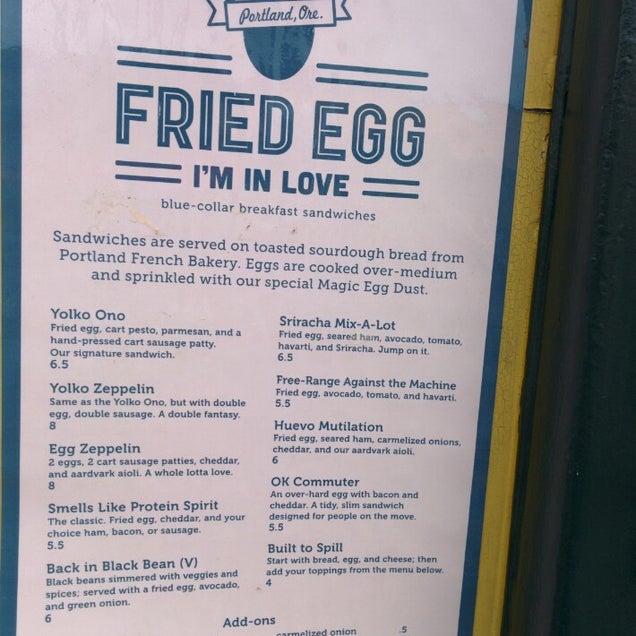 Portland, Ore.
FRIED EGG
I'M IN LOVE
blue-collar breakfast sandwiches
Sandwiches are served on toasted sourdough bread from
Portland French Bakery. Eggs are cooked over-medium
and sprinkled with our special Magic Egg Dust.
Yolko Ono
Fried egg, cart pesto, parmesan, and a
hand-pressed cart sausage patty.
Our signature sandwich.
6.5
Yolko Zeppelin
Same as the Yolko Ono, but with double
egg, double sausage. A double fantasy.
8
Egg Zeppelin
2 eggs, 2 cart sausage patties, cheddar,
and aardvark aioli. A whole lotta love.
8
Smells Like Protein Spirit
The classic. Fried egg, cheddar, and your
choice ham, bacon, or sausage.
5.5
Back in Black Bean (V)
Black beans simmered with veggies and
spices; served with a fried egg, avocado,
and green onion.
6
Sriracha Mix-A-Lot
Fried egg, seared ham, avocado, tomato,
havarti, and Sriracha. Jump on it.
6.5
Free-Range Against the Machine
Fried egg, avocado, tomato, and havarti.
5.5
Huevo Mutilation
Fried egg, seared ham, carmelized onions,
cheddar, and our aardvark aioli.
6
OK Commuter
An over-hard egg with bacon and
cheddar. A tidy, slim sandwich
designed for people on the move.
5.5
Built to Spill
Start with bread, egg, and cheese; then
add your toppings from the menu below.
4
Add-ons
carmelized onion .5